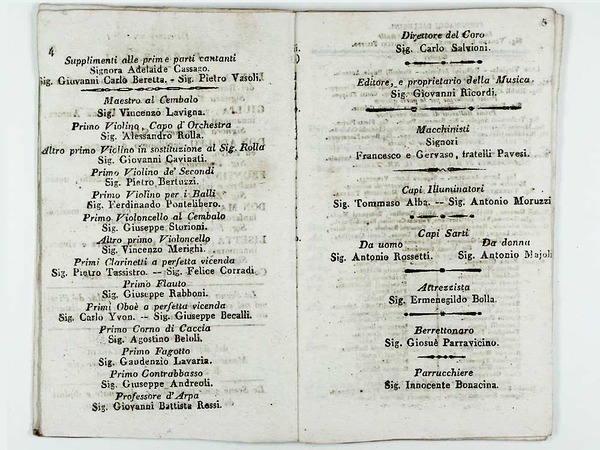 4
Supplimenti alle prime parti cantanti
Signora Adelaide Cassago.
Sig. Giovanni Carlo Beretta. - Sig. Pietro Vasoli.
Maestro al Cembalo
Sig. Vincenzo Lavigna.
Primo Violino, Capo d'Orchestra
Sig. Alessandro Rolla.
Altro primo Violino in sostituzione al Sig. Rolla
Sig. Giovanni Cavinati.
Primo Violino de' Secondi
Sig. Pietro Bertuzzi.
Primo Violino per i Balli
Sig. Ferdinando Pontelibero.
Primo Violoncello al Cembalo
Sig. Giuseppe Storioni.
Altro primo Violoncello
Sig. Vincenzo Merighi.
Primi Clarinetti a perfetta vicenda
Sig. Pietro Tassistro. — Sig. Felice Corradi.
Primo Flauto
Sig. Giuseppe Rabboni.
Primi Oboè a perfetta vicenda
Sig. Carlo Yvon. — Sig. Giuseppe Becalli.
Primo Corno di Caccia
Sig. Agostino Beloli.
Primo Fagotto
Sig. Gaudenzio Lavaria.
Primo Contrabbasso
Sig. Giuseppe Andreoli.
Professore d'Arpa
Sig. Giovanni Battista Rossi.
5
Direttore del Coro
Sig. Carlo Salvioni.
Editore, e proprietario della Musica
Sig. Giovanni Ricordi.
Macchinisti
Signori
Francesco e Gervaso, fratelli Pavesi.
Capi Illuminatori
Sig. Tommaso Alba. — Sig. Antonio Moruzzi
Capi Sarti
Da uomo Da donna
Sig. Antonio Rossetti. Sig. Antonio Majoli
Attrezzista
Sig. Ermenegildo Bolla.
Berrettonaro
Sig. Giosuè Parravicino.
Parrucchiere
Sig. Innocente Bonacina.